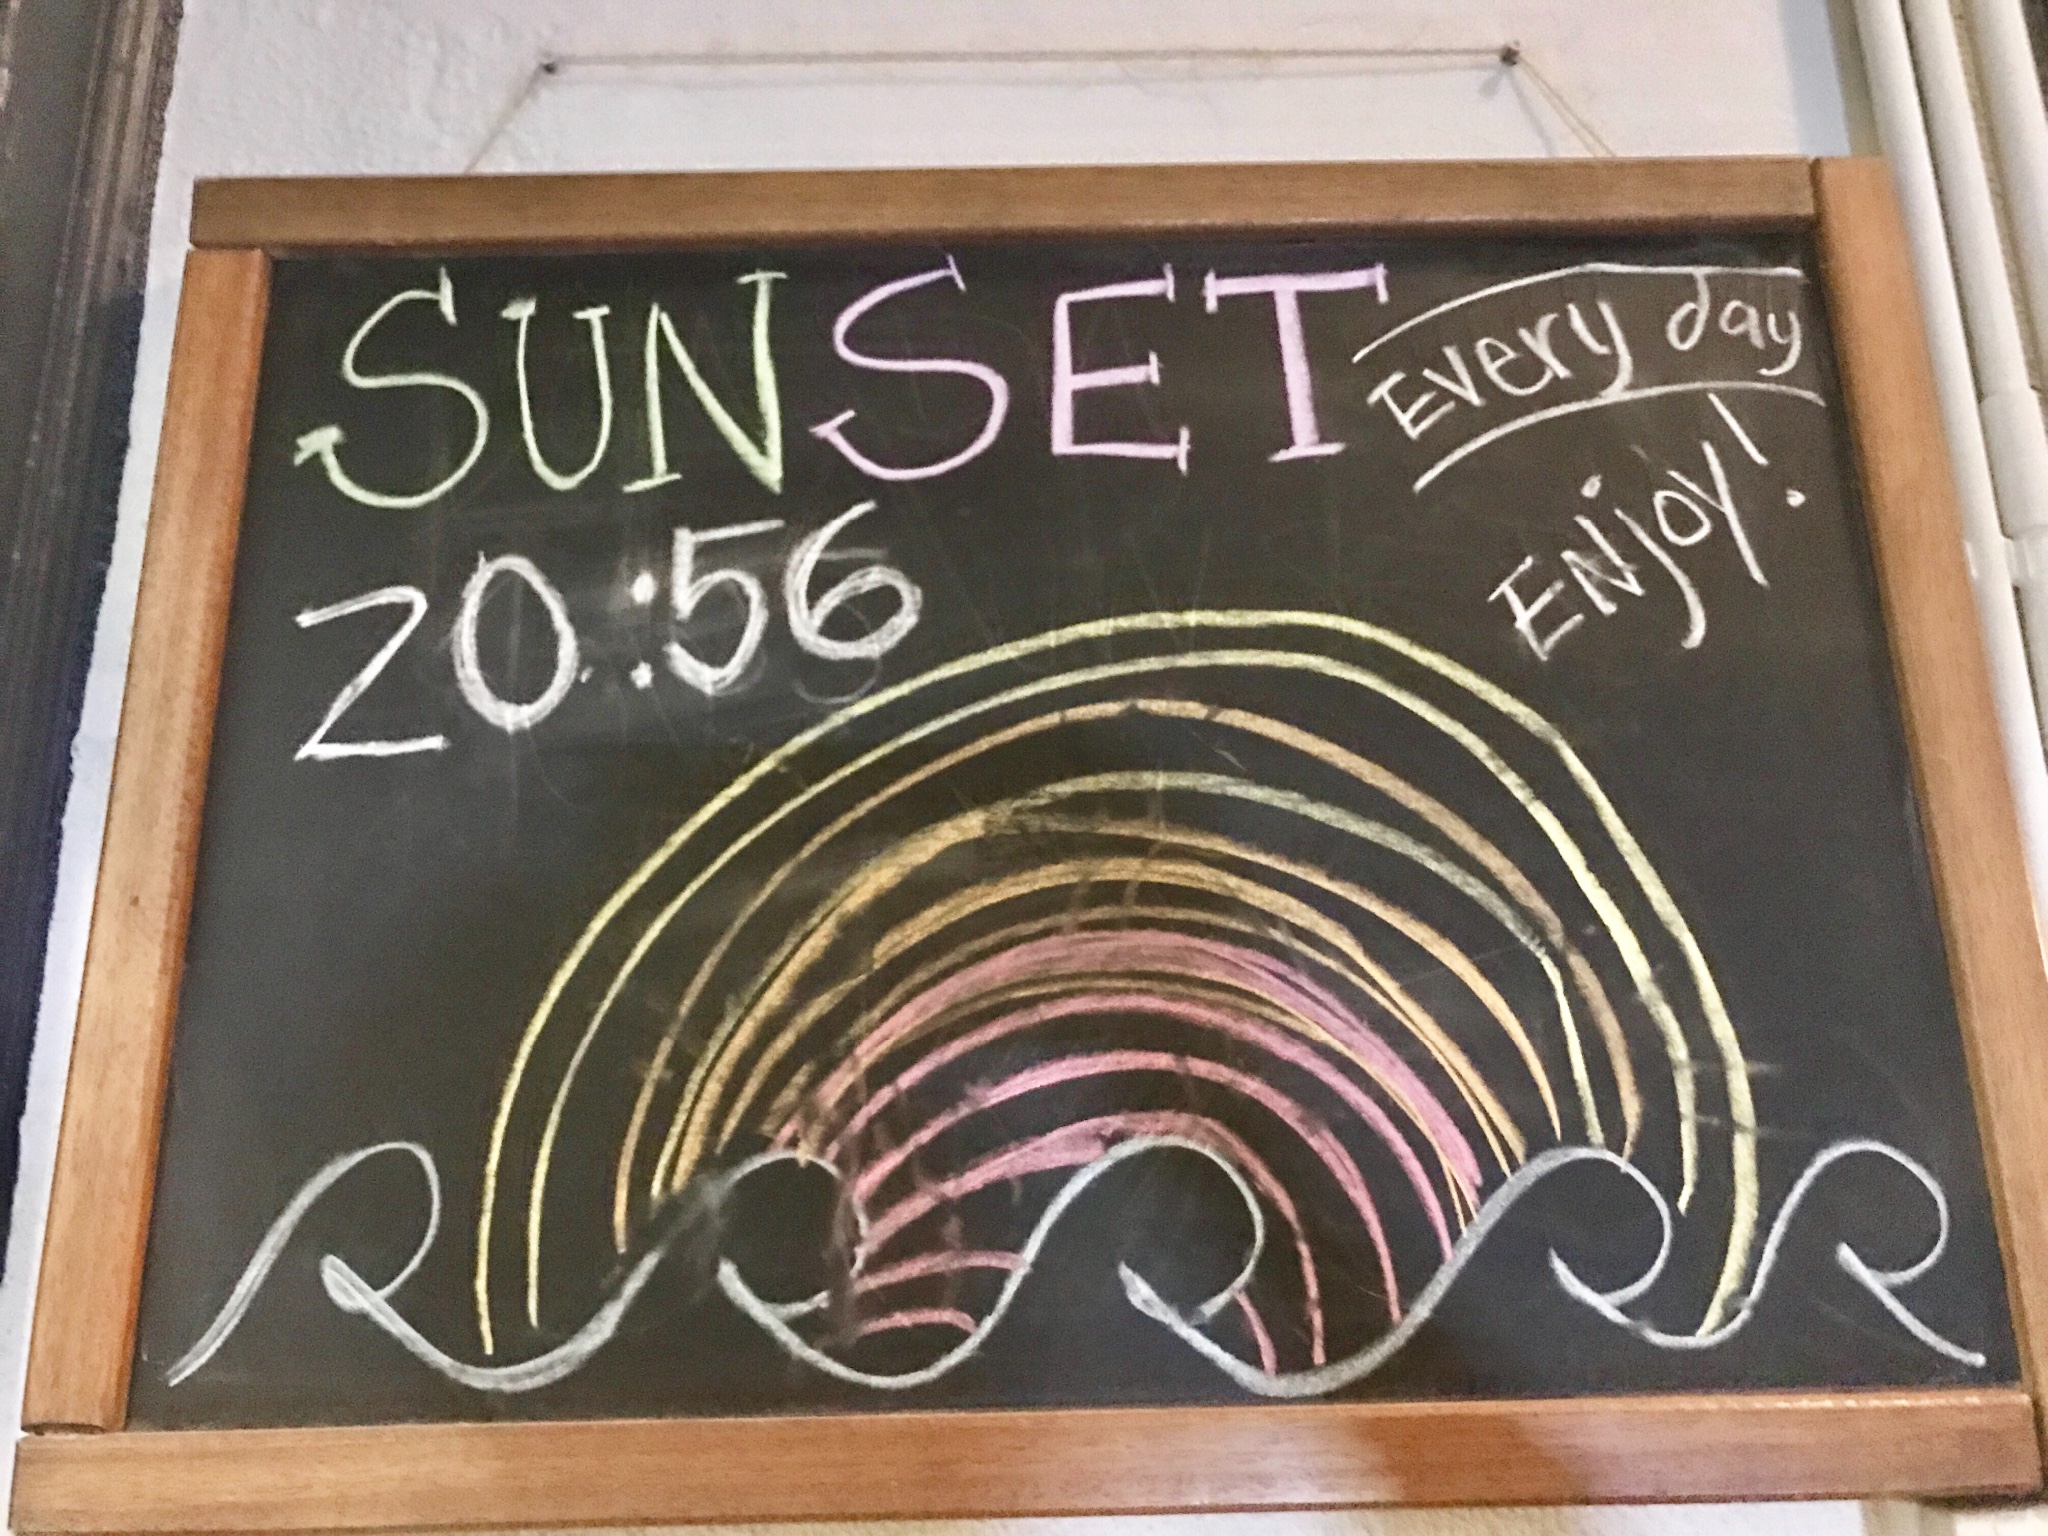 SUNSET
Every day
20:56
ENjoy!